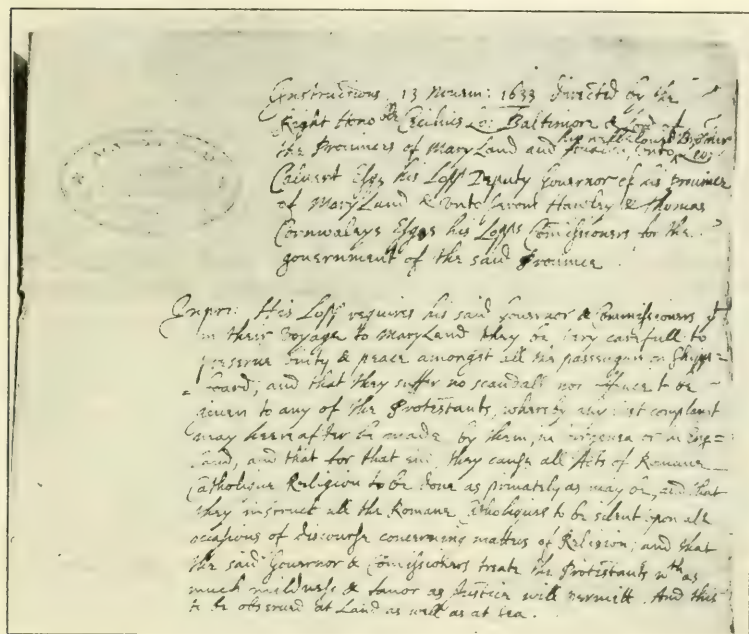 Instructions 13 Novem: 1633 directed by the
Right Hono ble Cecilius Lo: Baltimore & Lord of
the Provinces of Mary Land and Avalon unto his well beloved Brother Leo:
Calvert Esqr his Lopps Deputy Governor of his Province
of Mary Land & unto Jerom Hawley & Thomas
Cornwaleys Esqrs his Lopps Comissioners for the
government of the said Province.
Inpri: His Lopp requires his said Governor & Commissioners yt
in their voyage to Mary Land they be very carefull to
preserve unity & peace amongst all the passengers on Shipp=
=board, and that they suffer no scandall nor offence to be
given to any of the Protestants, whereby any just complaint
may heereafter be made by them, in Virginea or in Eng=
land, and that for that end they cause all Acts of Romane
Catholique Religion to be done as privately as may be, and that
they instruct all the Romane Catholiques to be silent upon all
occasions of discourse concerning matters of Religion; and that
the said Governor & Comissioners treate the Protestants wth as
much mildness & favor as Justice will permitt. And this
to be observed at Land as well as at Sea.